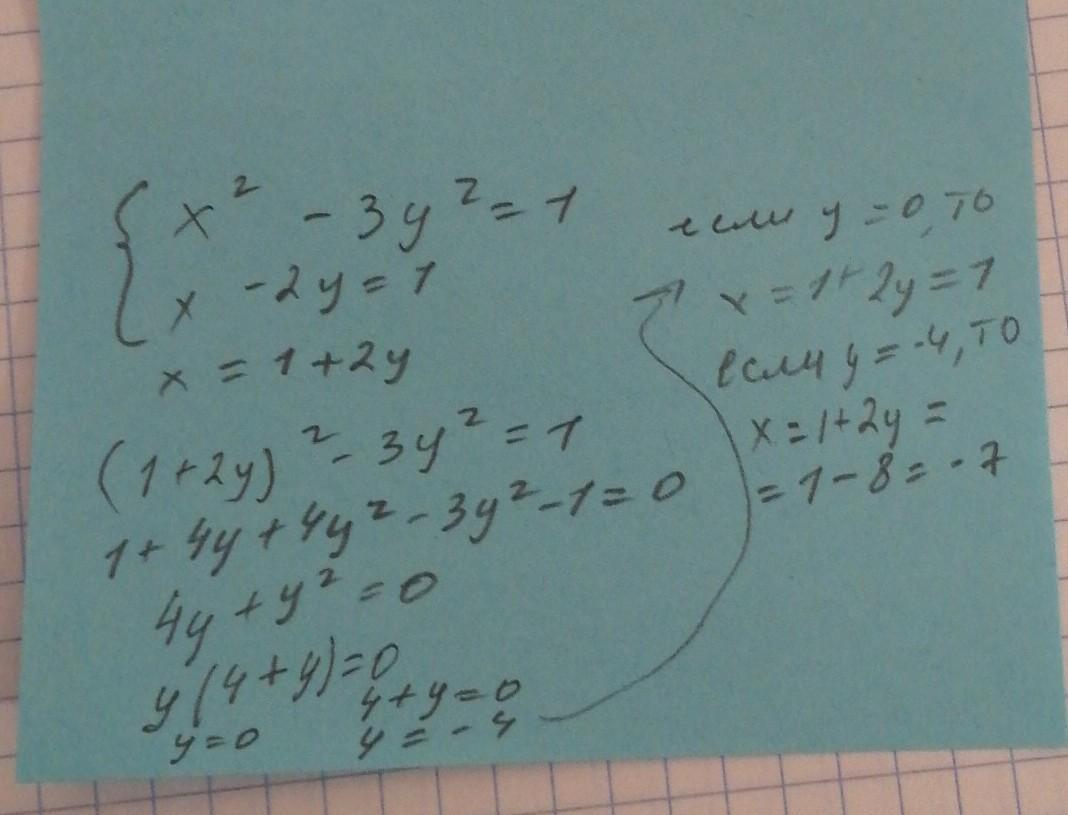 x² - 3y² = 1
x - 2y = 1
x = 1 + 2y
(1 + 2y)² - 3y² = 1
1 + 4y + 4y² - 3y² - 1 = 0
4y + y² = 0
y(4 + y) = 0
y = 0    4 + y = 0
y = -4
если y = 0, то
x = 1 + 2y = 1
если y = -4, то
x = 1 + 2y =
= 1 - 8 = -7